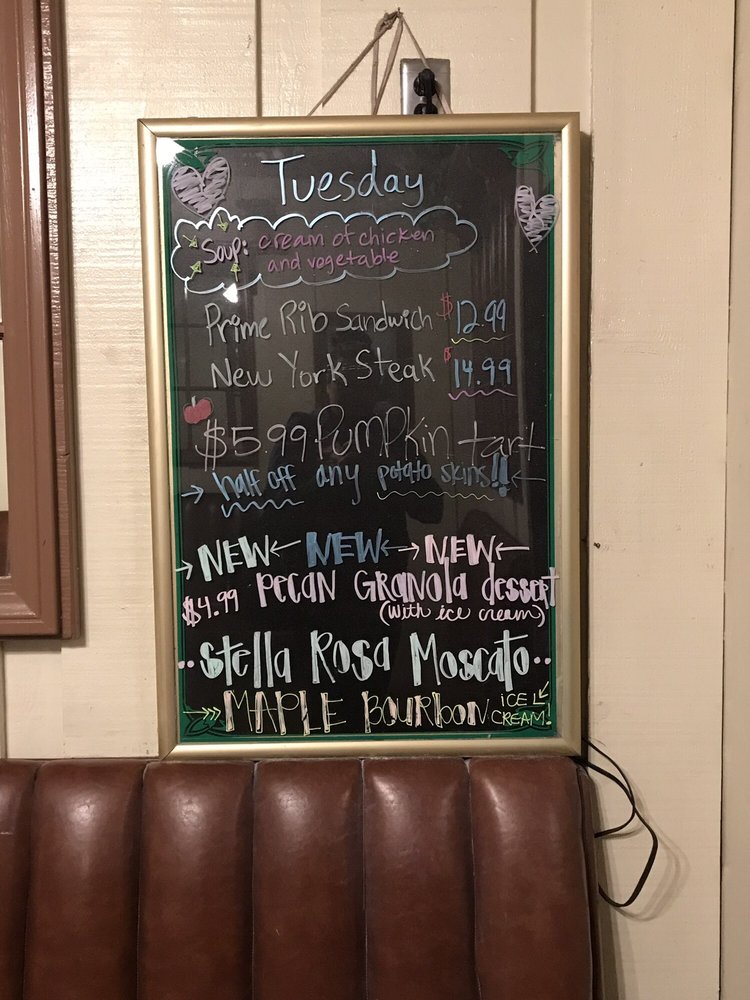 Tuesday
Soup: cream of chicken
and vegetable
Prime Rib Sandwich $12.99
New York Steak $14.99
$5.99 Pumpkin tart
half off any potato skins!!
NEW NEW NEW
$4.99 Pecan Granola dessert
(with ice cream)
Stella Rosa Moscato
MAPLE Bourbon ICE
CREAM!